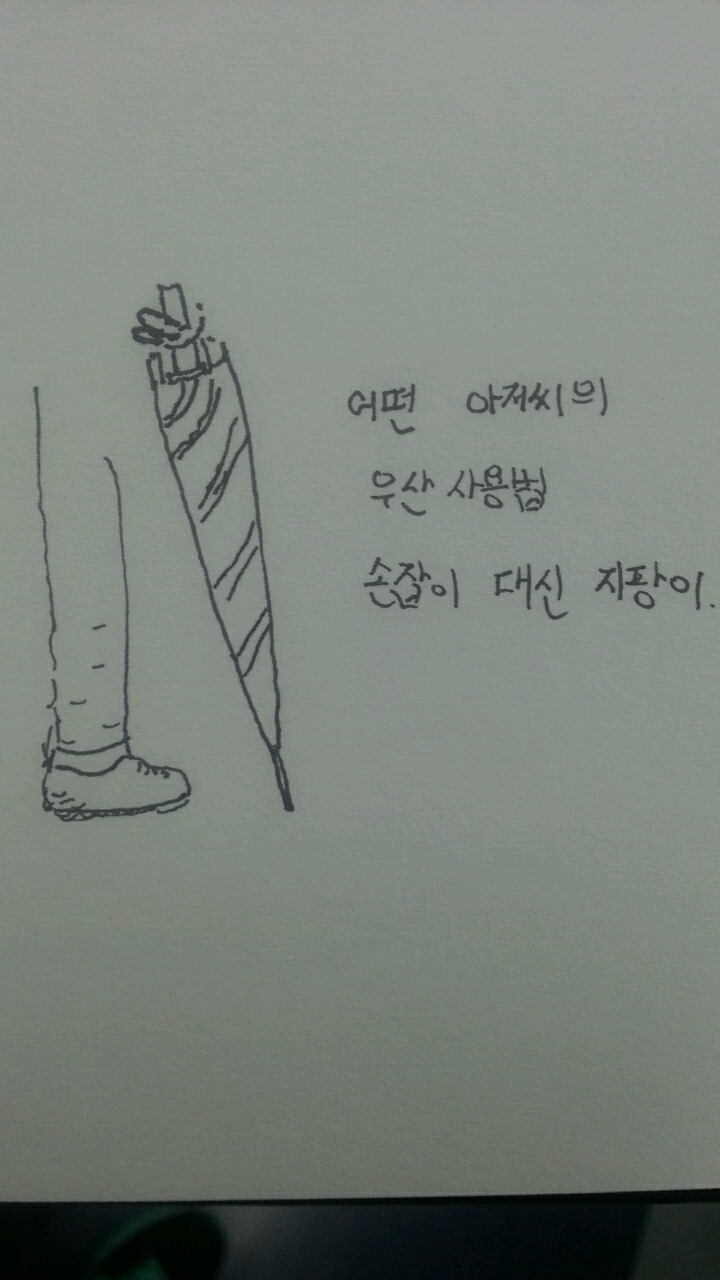 어떤 아저씨의
우산 사용법
손잡이 대신 지팡이.